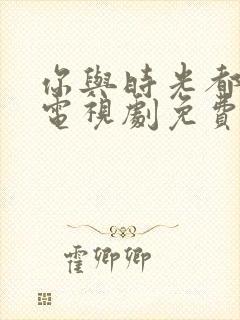 你與時光都
電視劇免費
霍卿卿